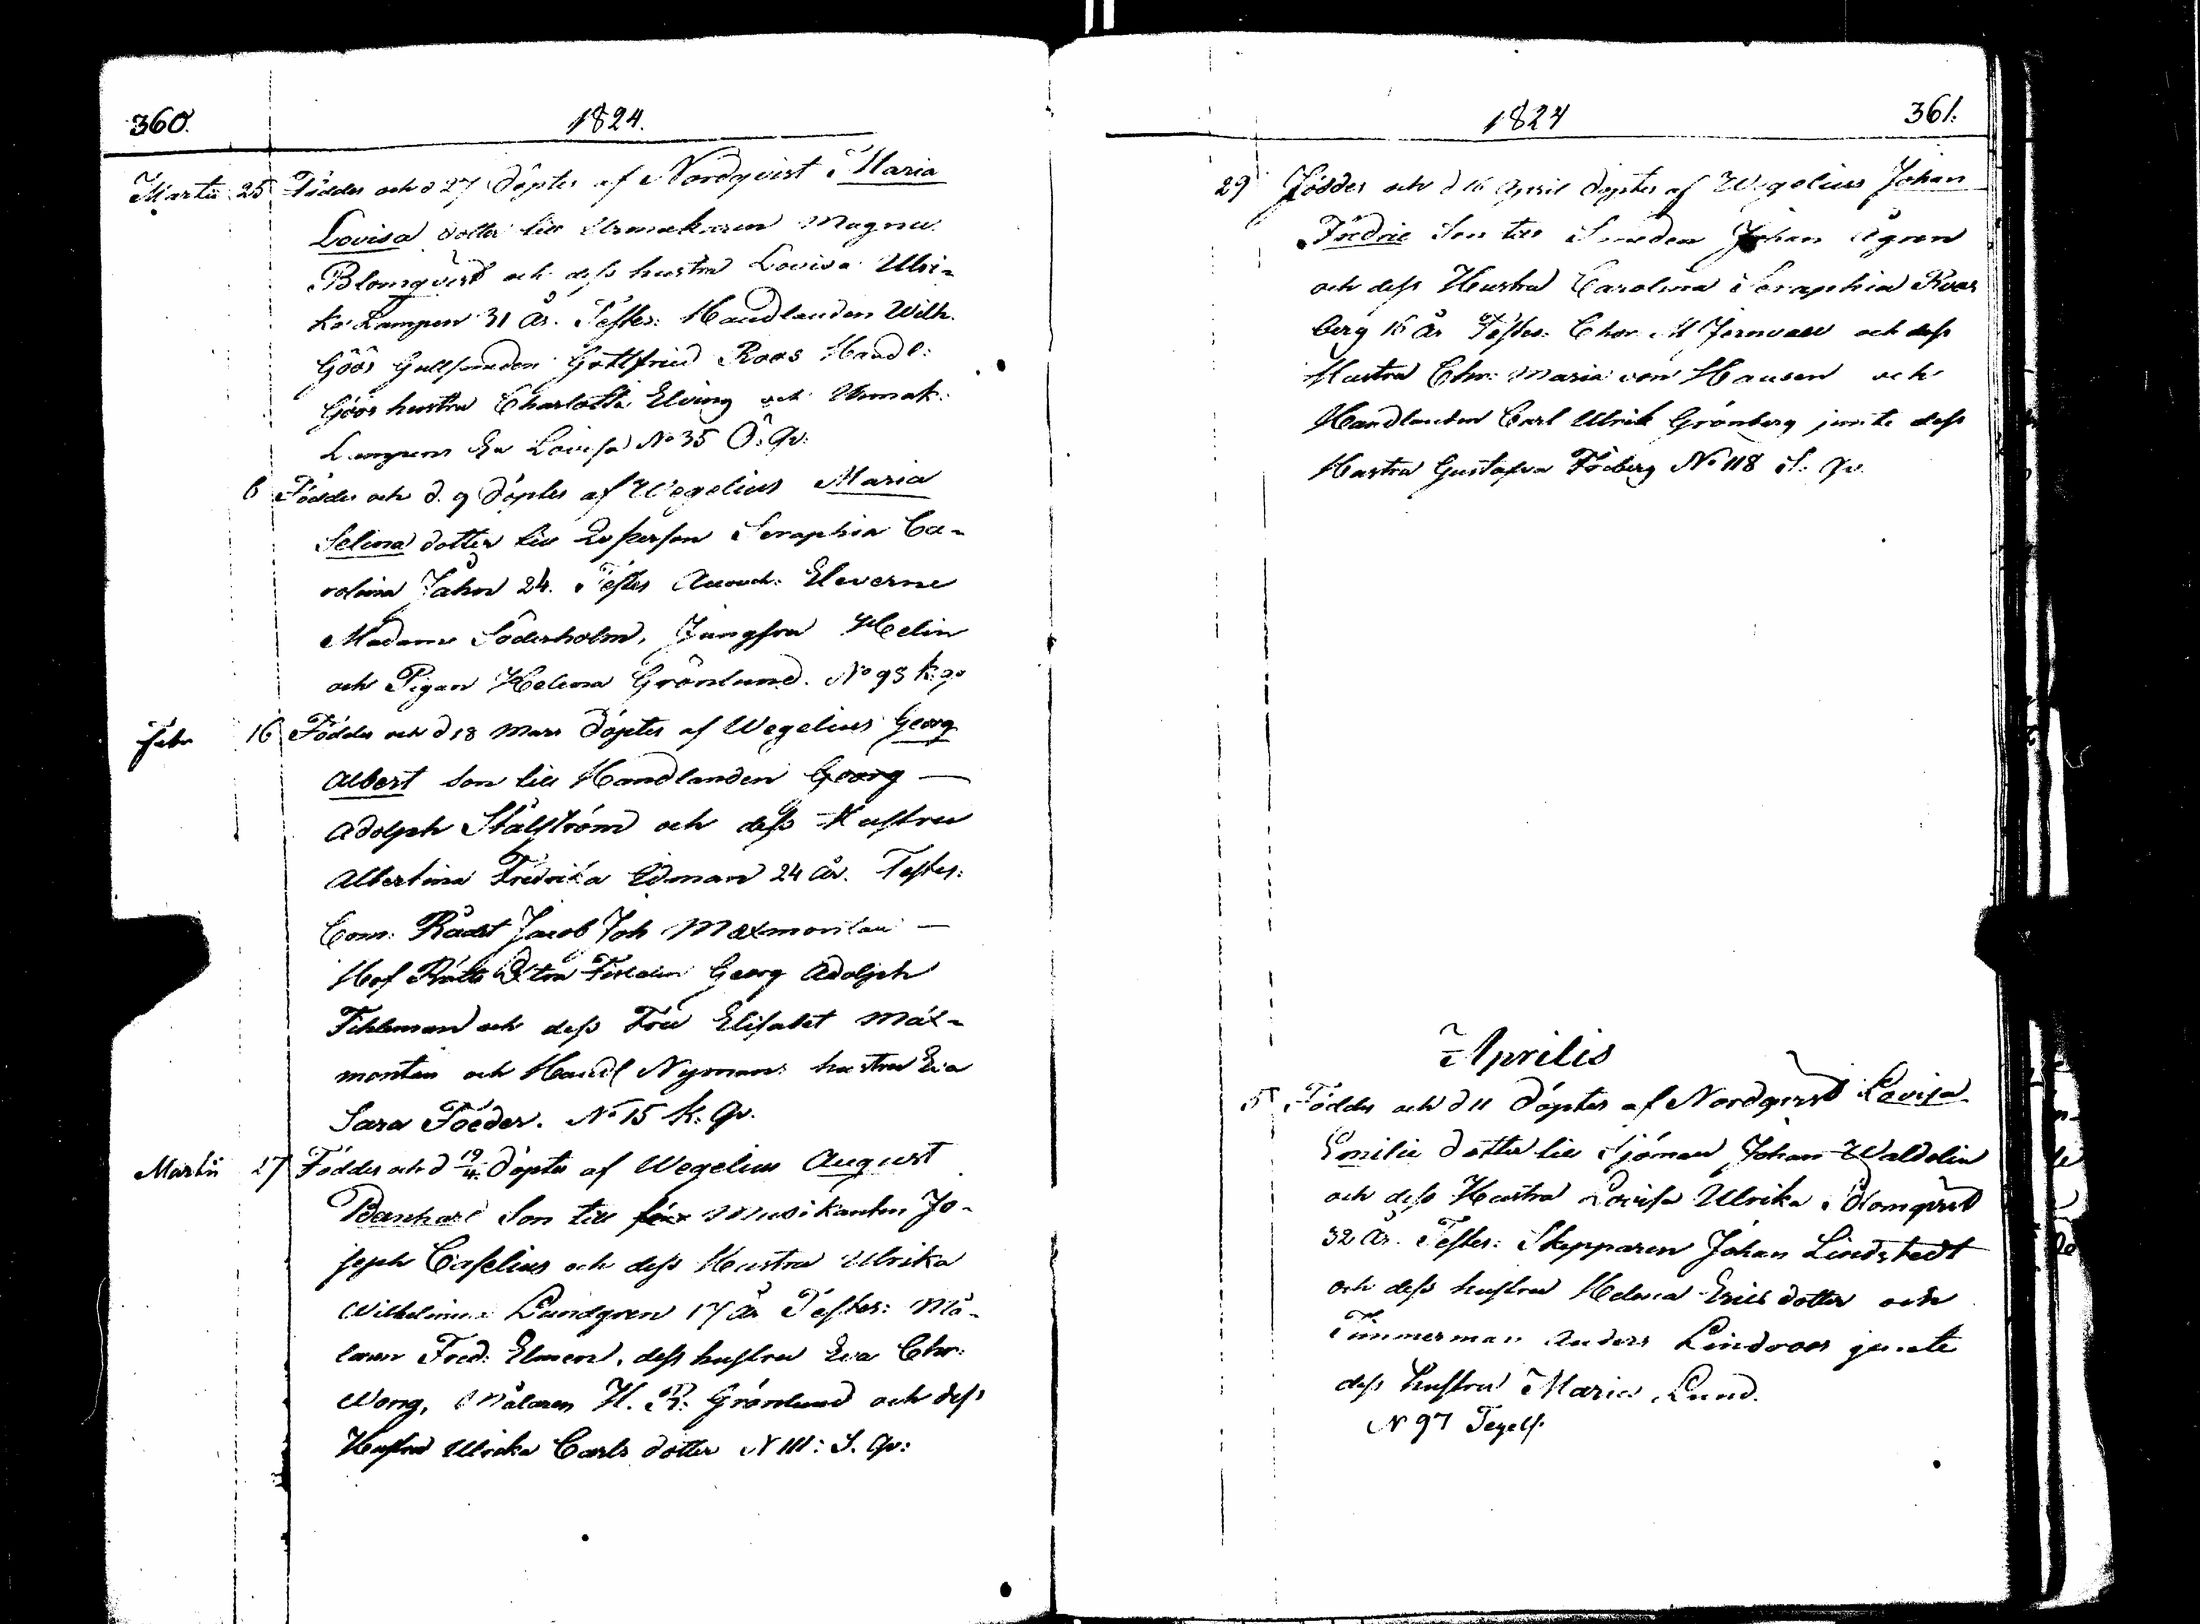 360.
1824.
Martii 25 Föddes och d 27 döptes af Nordqvist Maria
Lovisa dotter till Urmakaren Magnus
Blomqvist och dess hustru Lovisa Ulri-
ka Lampen 31 År. Testes: Handlanden Wilh.
Göös Gullsmeden Gottfried Roos Handl:
Göös hustru Charlotta Elving och Urmak:
Eva Lovisa No 35 Ö: Qv:
6 Föddes och d. 9 döptes af Wegelius Maria
Selina dotter till Qvperson Seraphia Ca-
rolina Jahn 24. Testes Accouch: Eleverne
Madame Söderholm, Jungfru Helin
och Pigan Helena Grönlund. No 93 K: qv
Febr 16 Föddes och d 18 Mars döptes af Wegelius Georg
Albert son till Handlanden Georg —
Adolph Stålström och dess Hustru
Albertina Fredrika Edman 24 År. Testes:
Com: Rådet Jacob Joh Maxmontan —
Hof Rätts Georg Adolph
Fihleman och dess Fru Elisabet Max-
montan och Handl Nymans hustru Eva
Sara Föeder. No 15 K: Qv.
Martii 27 Föddes och d 19/4 döptes af Wegelius August
Bernhard Son till förr Musikanten Jo-
seph Caselius och dess Hustru Ulrika
Wilhelmina Lundgren 17 År Testes: Må-
laren Fred: Elmen, dess hustru Eva Chr:
Wong, Målaren H. R: Grönlund och dess
Hustru Ulrika Carls dotter N 111: S. Qv:
1824
361.
29 Föddes och d 16 April döptes af Wegelius Johan
Fredric Son till Smeden Johan Ågren
och dess Hustru Carolina Seraphia Roos
berg 16 År Testes: Chor. M Jernvall och dess
Hustru Chr: Maria von Hausen och
Handlanden Carl Ulrik Grönberg jemte dess
Hustru Gustafva Fröberg No 118 S: Qv.
Aprilis
5 Föddes och d 11 döptes af Nordqvist Lovisa
Emilie dotter till Sjöman Johan Waldelin
och dess Hustru Lovisa Ulrika Blomqvist
32 År. Testes: Skepparen Johan Lindstedt
och dess hustru Helena Ericsdotter och
Timmerman Anders Lindroos jemte
dess hustru Maria Lund.
N 97 Tegels.